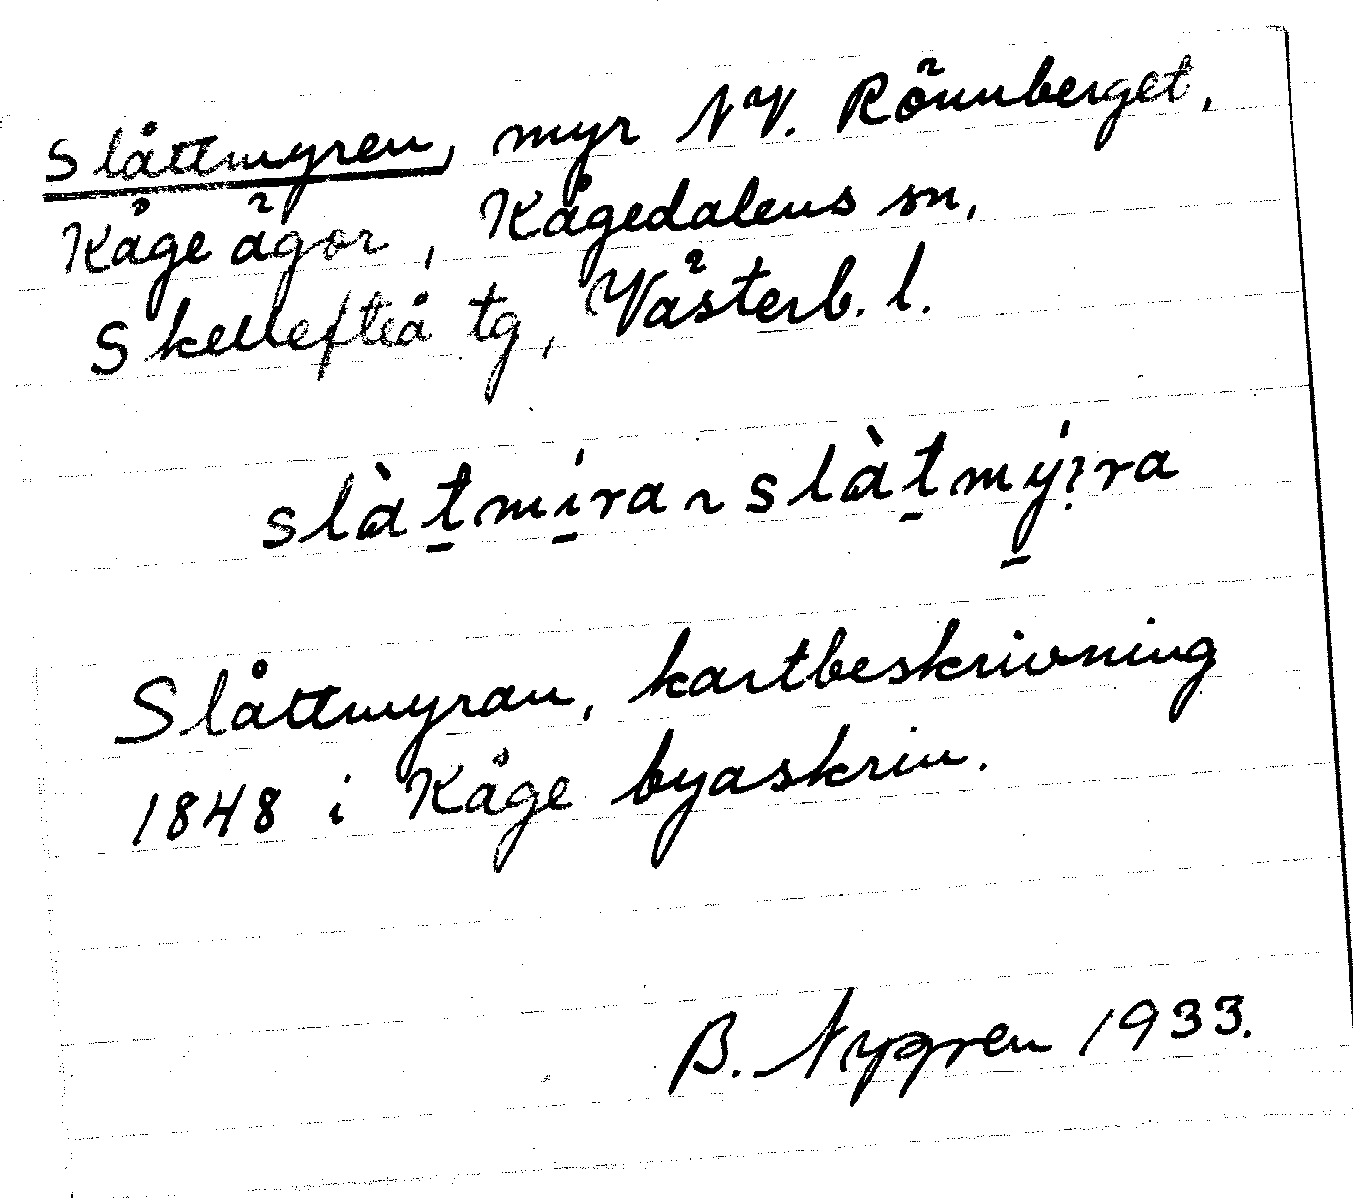 Slåttmyren, myr NV. Rönnberget,
Kåge ägor, Kågedalens sn,
Skellefteå tg, Västerb. l.
slàt̠mí̠ra ~ slàt̠mý̠?ra
Slåttmyran, kartbeskrivning
1848 i Kåge byaskrin.
B. Nygren 1933.